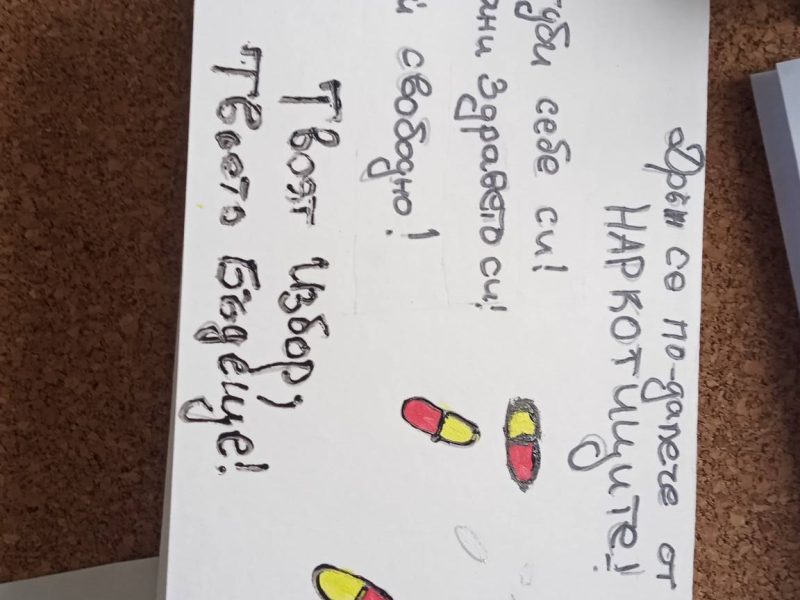 Дръж се по-далече от
НАРКОТИЦИТЕ!
губи себе си!
Здравето си!
свободно!
Твоят избор,
Твоето Бъдеще!